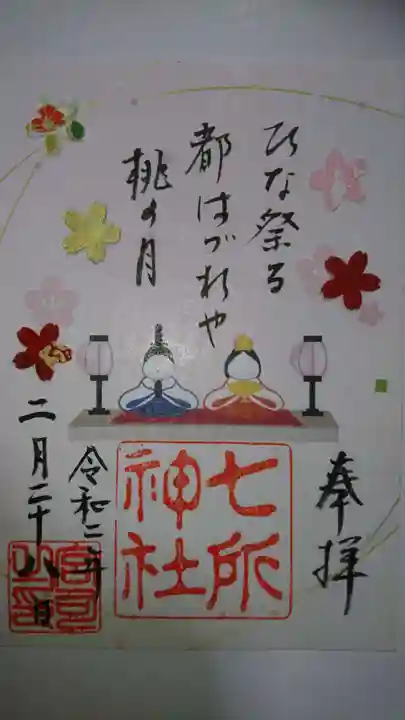 ひな祭る
都はづれや
桃の月
奉拝
七所
神社
令和二年
二月二十八日
宮司
之印